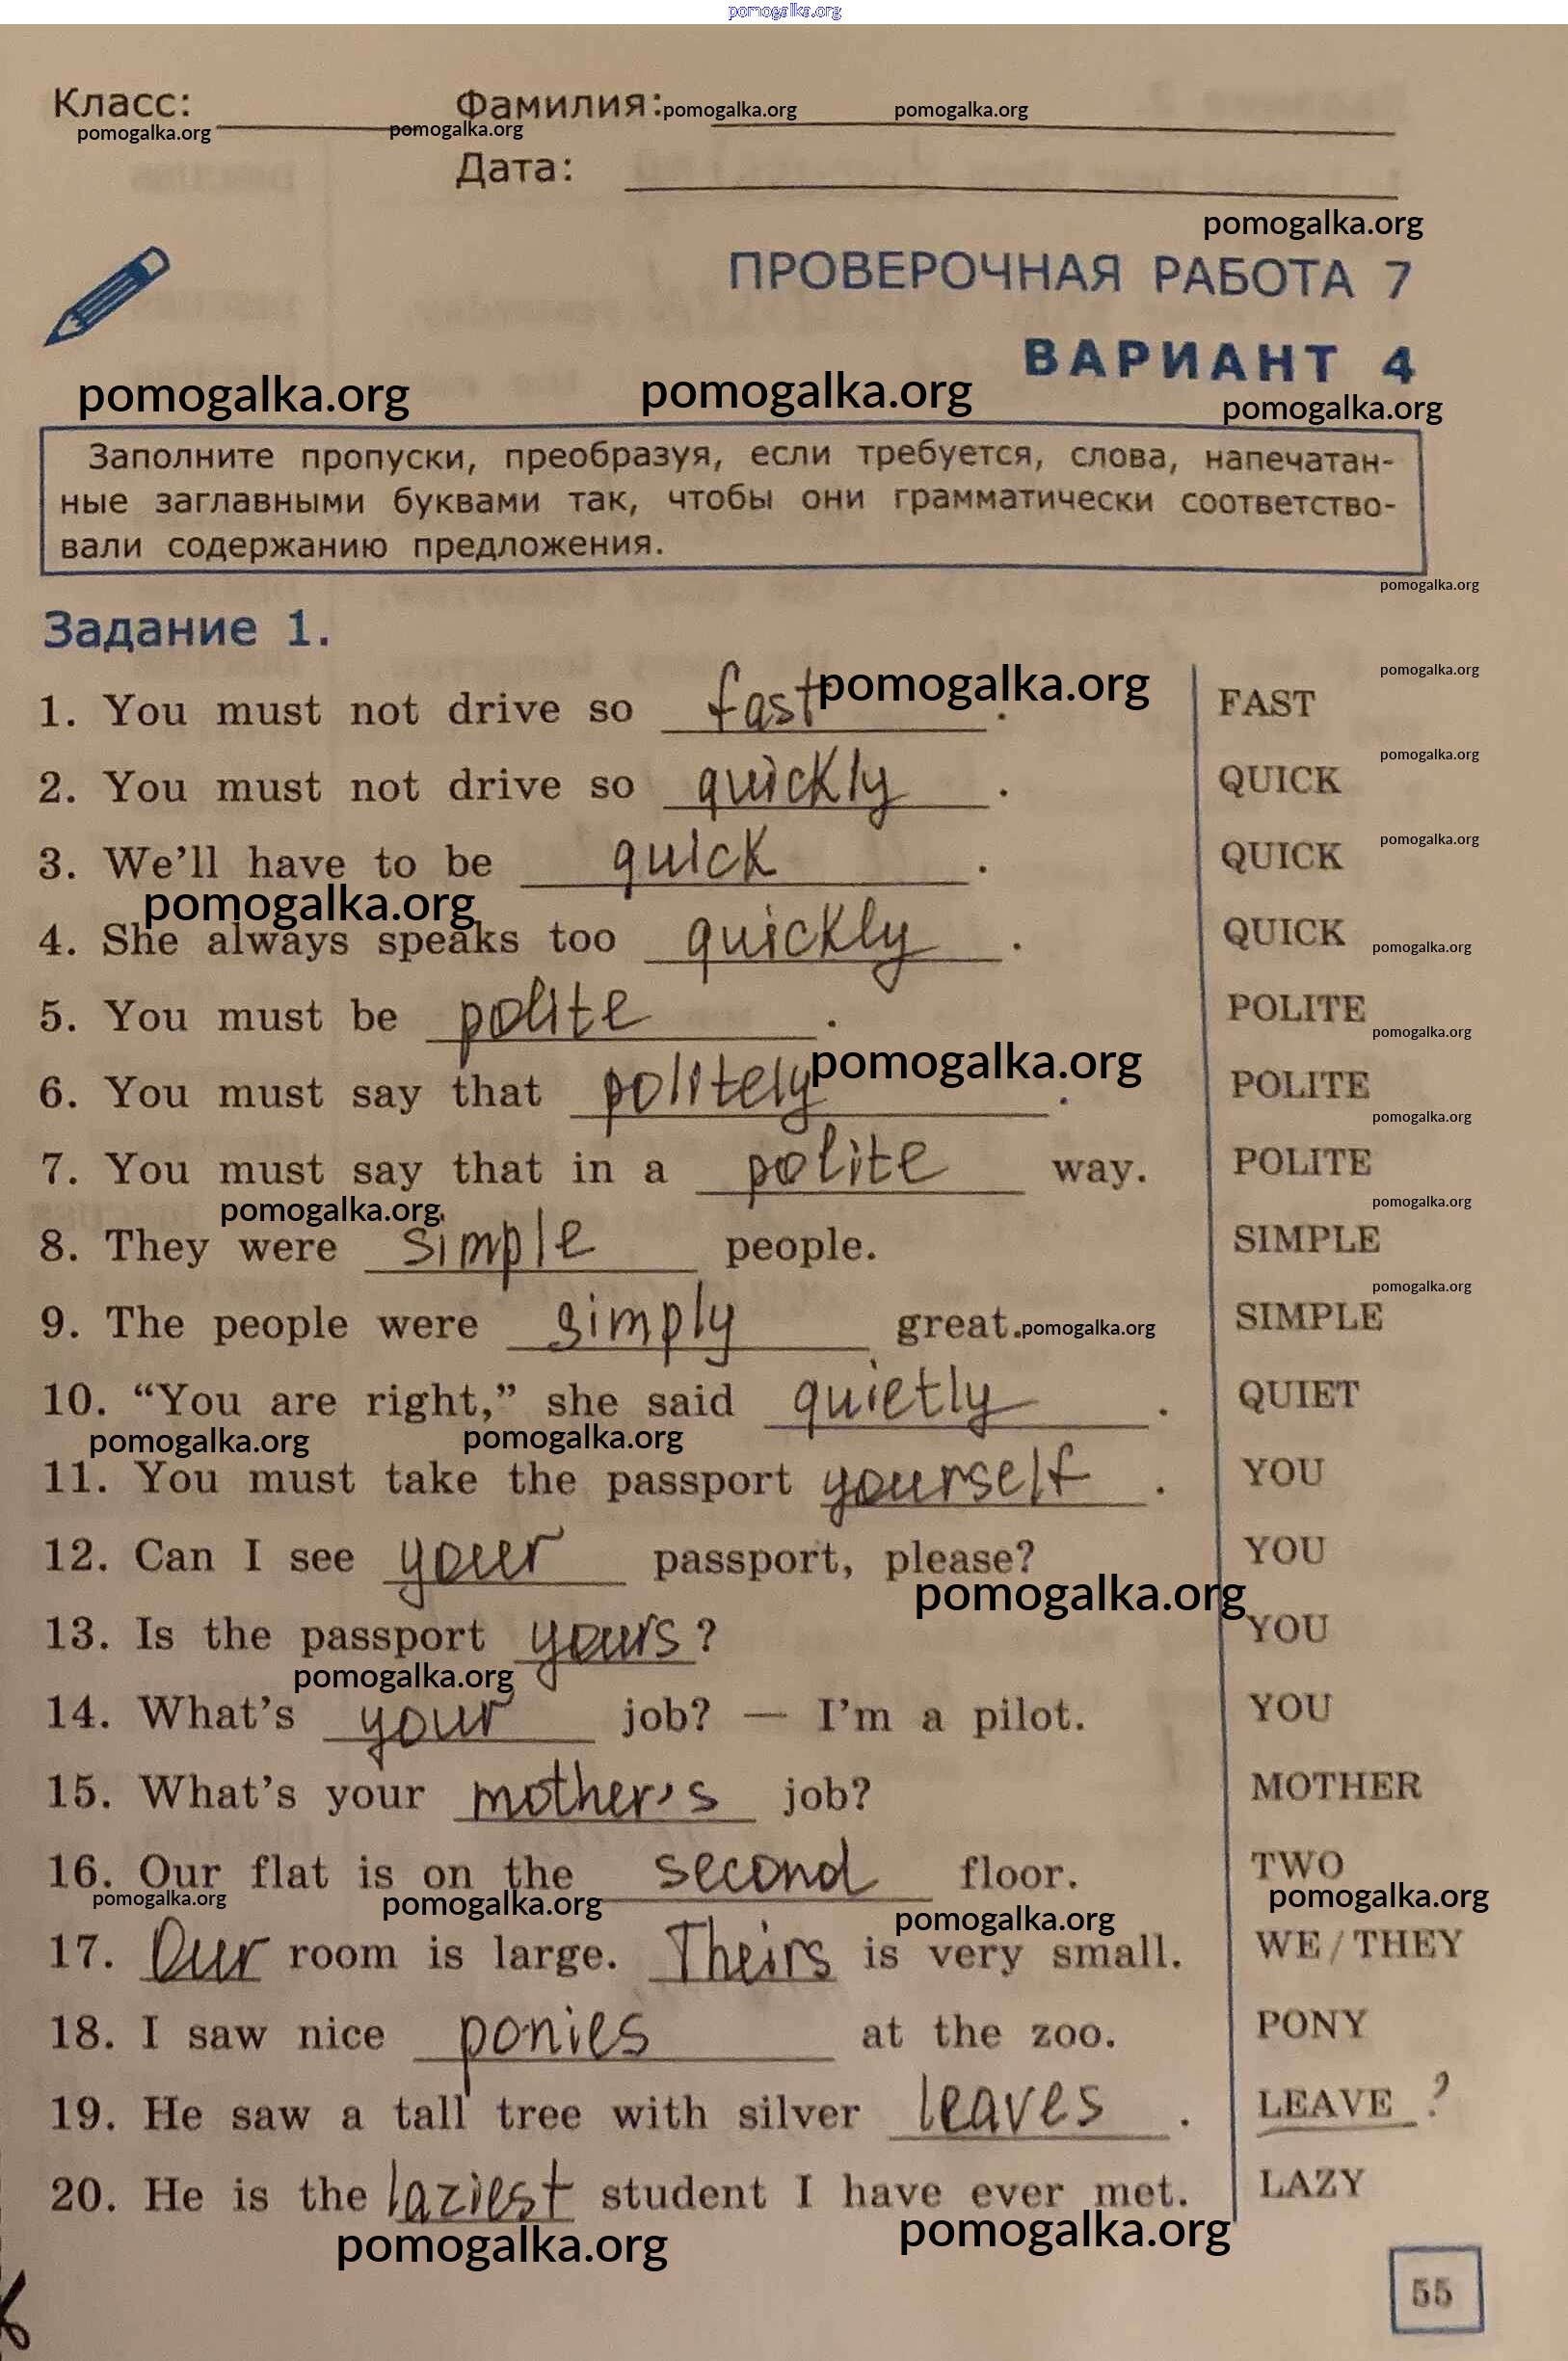 pomogalka.org
Класс: Фамилия: pomogalka.org pomogalka.org
pomogalka.org pomogalka.org
Дата:
pomogalka.org
ПРОВЕРОЧНАЯ РАБОТА 7
ВАРИАНТ 4
pomogalka.org pomogalka.org pomogalka.org
Заполните пропуски, преобразуя, если требуется, слова, напечатан-
ные заглавными буквами так, чтобы они грамматически соответство-
вали содержанию предложения.
pomogalka.org
Задание 1.
pomogalka.org
1. You must not drive so fast pomogalka.org. FAST
pomogalka.org
2. You must not drive so quickly. QUICK
pomogalka.org
3. We'll have to be quick. QUICK
pomogalka.org
4. She always speaks too quickly. QUICK pomogalka.org
5. You must be polite. POLITE
pomogalka.org
6. You must say that politely pomogalka.org. POLITE
pomogalka.org
7. You must say that in a polite way. POLITE
pomogalka.org pomogalka.org
8. They were simple people. SIMPLE
pomogalka.org
9. The people were simply great. pomogalka.org SIMPLE
10. “You are right,” she said quietly. QUIET
pomogalka.org pomogalka.org
11. You must take the passport yourself. YOU
12. Can I see your passport, please? YOU
pomogalka.org
13. Is the passport yours? YOU
pomogalka.org
14. What's your job? — I'm a pilot. YOU
15. What's your mother's job? MOTHER
16. Our flat is on the second floor. TWO
pomogalka.org pomogalka.org pomogalka.org pomogalka.org
17. Our room is large. Theirs is very small. WE / THEY
18. I saw nice ponies at the zoo. PONY
19. He saw a tall tree with silver leaves. LEAVE ?
20. He is the laziest student I have ever met. LAZY
pomogalka.org pomogalka.org
55